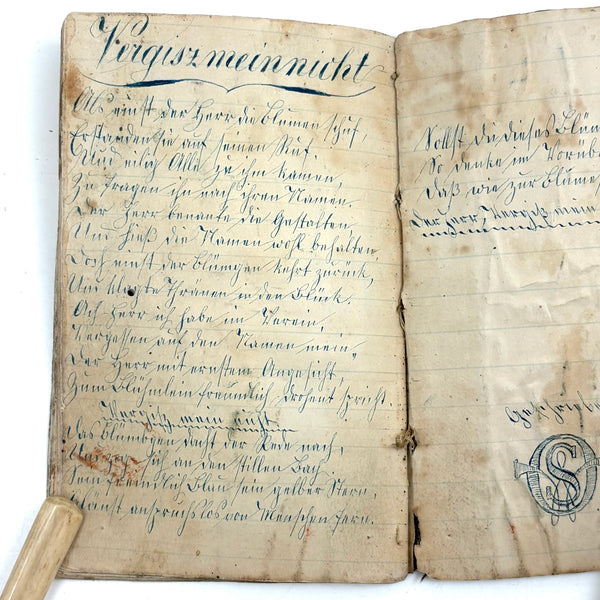 Vergiszmeinnicht
Als einst der Herr die Blumen schuf,
Erstanden sie auf seinen Ruf,
Und eilig Alle zu ihm kamen,
Zu fragen ihn nach ihren Namen.
Der Herr benante die Gestalten,
Und hieß die Namen wohl behalten,
Doch einst der Blümgen kehrt zurück,
Und klagte Thränen in den Blück.
Ach Herr ich habe im Verein,
Vergessen auf den Namen mein,
Der Herr mit ernstem Angesicht,
Zum Blühmlein freundlich drohent spricht.
Vergiß mein nicht
Das Blümbgen dacht der Rede nach,
Und zog sich an den Stillen Bach,
Sein freundlich Blau sein gelber Stern,
Glänst anspruchslos von Menschen fern.
Sollst Du dieses Blüm
So denke im Vorüb
Daß wie zur Blume
Der Herr, Vergiß mein
Geschriebe